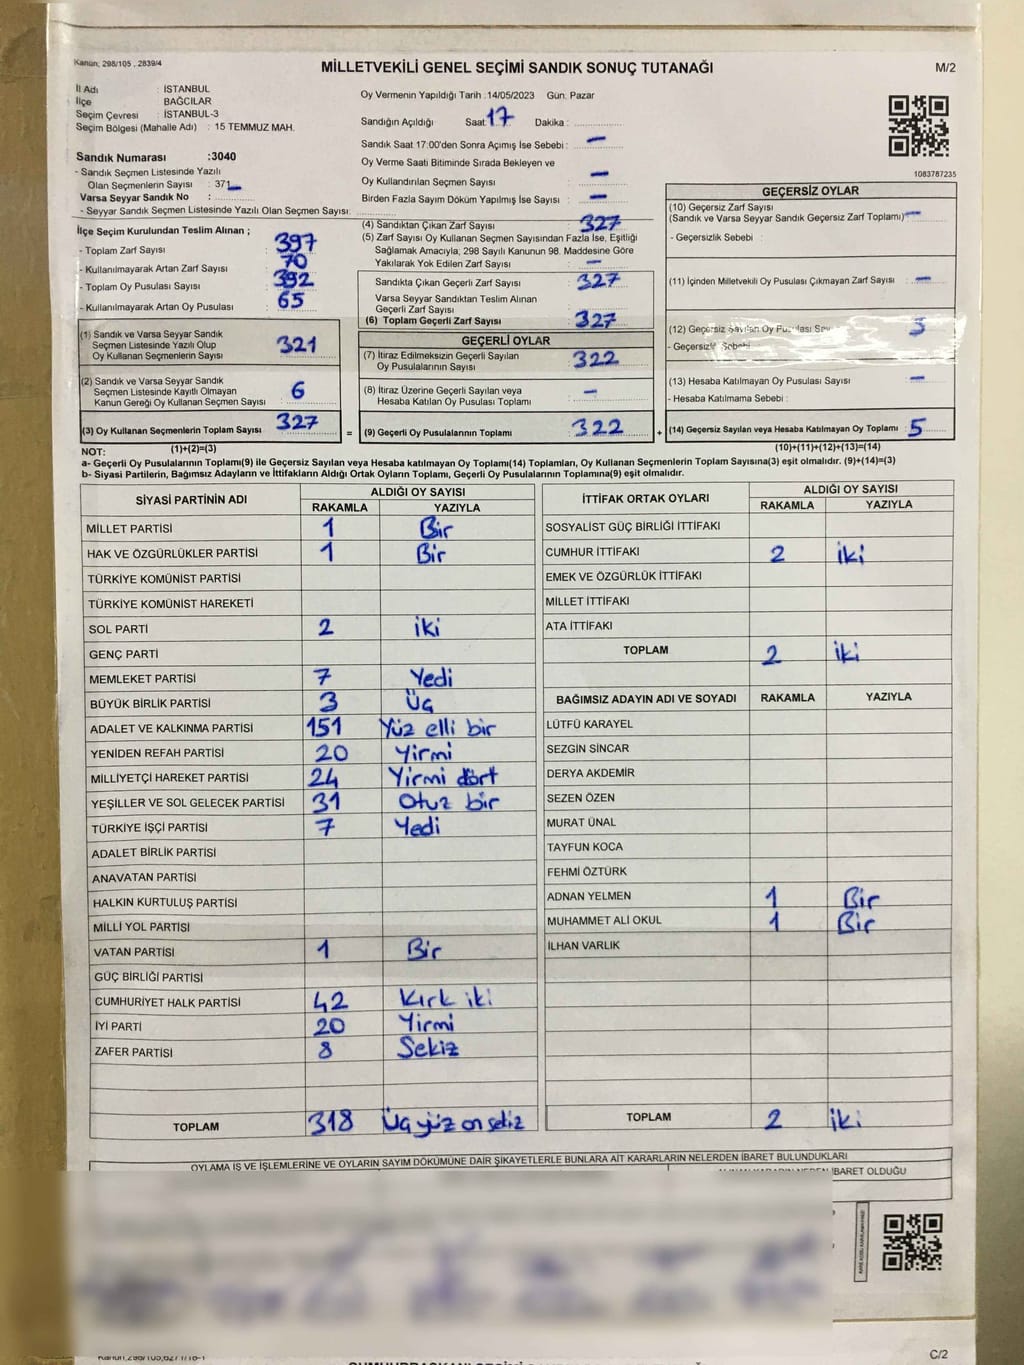 Kanun; 298/105 , 2839/4
MİLLETVEKİLİ GENEL SEÇİMİ SANDIK SONUÇ TUTANAĞI
M/2
İl Adı : İSTANBUL
İlçe : BAĞCILAR
Seçim Çevresi : İSTANBUL-3
Seçim Bölgesi (Mahalle Adı) : 15 TEMMUZ MAH.
Sandık Numarası :3040
- Sandık Seçmen Listesinde Yazılı
Olan Seçmenlerin Sayısı : 371
Varsa Seyyar Sandık No :
- Seyyar Sandık Seçmen Listesinde Yazılı Olan Seçmen Sayısı:
Oy Vermenin Yapıldığı Tarih :14/05/2023 Gün: Pazar
Sandığın Açıldığı Saat: 17 Dakika :
Sandık Saat 17:00'den Sonra Açımış İse Sebebi : —
Oy Verme Saati Bitiminde Sırada Bekleyen ve
Oy Kullandırılan Seçmen Sayısı : —
Birden Fazla Sayım Döküm Yapılmış İse Sayısı : —
1083787235
İlçe Seçim Kurulundan Teslim Alınan ;
- Toplam Zarf Sayısı : 397
- Kullanılmayarak Artan Zarf Sayısı : 70
- Toplam Oy Pusulası Sayısı : 392
- Kullanılmayarak Artan Oy Pusulası : 65
(1) Sandık ve Varsa Seyyar Sandık
Seçmen Listesinde Yazılı Olup
Oy Kullanan Seçmenlerin Sayısı : 321
(2) Sandık ve Varsa Seyyar Sandık
Seçmen Listesinde Kayıtlı Olmayan
Kanun Gereği Oy Kullanan Seçmen Sayısı : 6
(3) Oy Kullanan Seçmenlerin Toplam Sayısı : 327
(4) Sandıktan Çıkan Zarf Sayısı : 327
(5) Zarf Sayısı Oy Kullanan Seçmen Sayısından Fazla İse, Eşitliği
Sağlamak Amacıyla; 298 Sayılı Kanunun 98. Maddesine Göre
Yakılarak Yok Edilen Zarf Sayısı : —
Sandıkta Çıkan Geçerli Zarf Sayısı : 327
Varsa Seyyar Sandıktan Teslim Alınan
Geçerli Zarf Sayısı :
(6) Toplam Geçerli Zarf Sayısı : 327
GEÇERLİ OYLAR
(7) İtiraz Edilmeksizin Geçerli Sayılan
Oy Pusulalarının Sayısı : 322
(8) İtiraz Üzerine Geçerli Sayılan veya
Hesaba Katılan Oy Pusulası Toplamı : —
= (9) Geçerli Oy Pusulalarının Toplamı : 322
GEÇERSİZ OYLAR
(10) Geçersiz Zarf Sayısı
(Sandık ve Varsa Seyyar Sandık Geçersiz Zarf Toplamı) —
- Geçersizlik Sebebi :
(11) İçinden Milletvekili Oy Pusulası Çıkmayan Zarf Sayısı : —
(12) Geçersiz Sayılan Oy Pusulası 5
- Geçersizlik Sebebi
(13) Hesaba Katılmayan Oy Pusulası Sayısı : —
- Hesaba Katılmama Sebebi :
+ (14) Geçersiz Sayılan veya Hesaba Katılmayan Oy Toplamı : 5
NOT: (1)+(2)=(3)
(10)+(11)+(12)+(13)=(14)
a- Geçerli Oy Pusulalarının Toplamı(9) ile Geçersiz Sayılan veya Hesaba katılmayan Oy Toplamı(14) Toplamları, Oy Kullanan Seçmenlerin Toplam Sayısına(3) eşit olmalıdır. (9)+(14)=(3)
b- Siyasi Partilerin, Bağımsız Adayların ve İttifakların Aldığı Ortak Oyların Toplamı, Geçerli Oy Pusulalarının Toplamına(9) eşit olmalıdır.
SİYASİ PARTİNİN ADI
ALDIĞI OY SAYISI
RAKAMLA YAZIYLA
MİLLET PARTİSİ 1 Bir
HAK VE ÖZGÜRLÜKLER PARTİSİ 1 Bir
TÜRKİYE KOMÜNİST PARTİSİ
TÜRKİYE KOMÜNİST HAREKETİ
SOL PARTİ 2 iki
GENÇ PARTİ
MEMLEKET PARTİSİ 7 Yedi
BÜYÜK BİRLİK PARTİSİ 3 Üç
ADALET VE KALKINMA PARTİSİ 151 Yüz elli bir
YENİDEN REFAH PARTİSİ 20 Yirmi
MİLLİYETÇİ HAREKET PARTİSİ 24 Yirmi dört
YEŞİLLER VE SOL GELECEK PARTİSİ 31 Otuz bir
TÜRKİYE İŞÇİ PARTİSİ 7 Yedi
ADALET BİRLİK PARTİSİ
ANAVATAN PARTİSİ
HALKIN KURTULUŞ PARTİSİ
MİLLİ YOL PARTİSİ
VATAN PARTİSİ 1 Bir
GÜÇ BİRLİĞİ PARTİSİ
CUMHURİYET HALK PARTİSİ 42 Kırk iki
İYİ PARTİ 20 Yirmi
ZAFER PARTİSİ 8 Sekiz
TOPLAM 318 Üç yüz on sekiz
İTTİFAK ORTAK OYLARI
ALDIĞI OY SAYISI
RAKAMLA YAZIYLA
SOSYALİST GÜÇ BİRLİĞİ İTTİFAKI
CUMHUR İTTİFAKI 2 iki
EMEK VE ÖZGÜRLÜK İTTİFAKI
MİLLET İTTİFAKI
ATA İTTİFAKI
TOPLAM 2 iki
BAĞIMSIZ ADAYIN ADI VE SOYADI RAKAMLA YAZIYLA
LÜTFÜ KARAYEL
SEZGİN SİNCAR
DERYA AKDEMİR
SEZEN ÖZEN
MURAT ÜNAL
TAYFUN KOCA
FEHMİ ÖZTÜRK
ADNAN YELMEN 1 Bir
MUHAMMET ALİ OKUL 1 Bir
İLHAN VARLIK
TOPLAM 2 iki
OYLAMA İŞ VE İŞLEMLERİNE VE OYLARIN SAYIM DÖKÜMÜNE DAİR ŞİKAYETLERLE BUNLARA AİT KARARLARIN NELERDEN İBARET BULUNDUKLARI
İBARET OLDUĞU
Kanun;298/105,6271/18-1
C/2